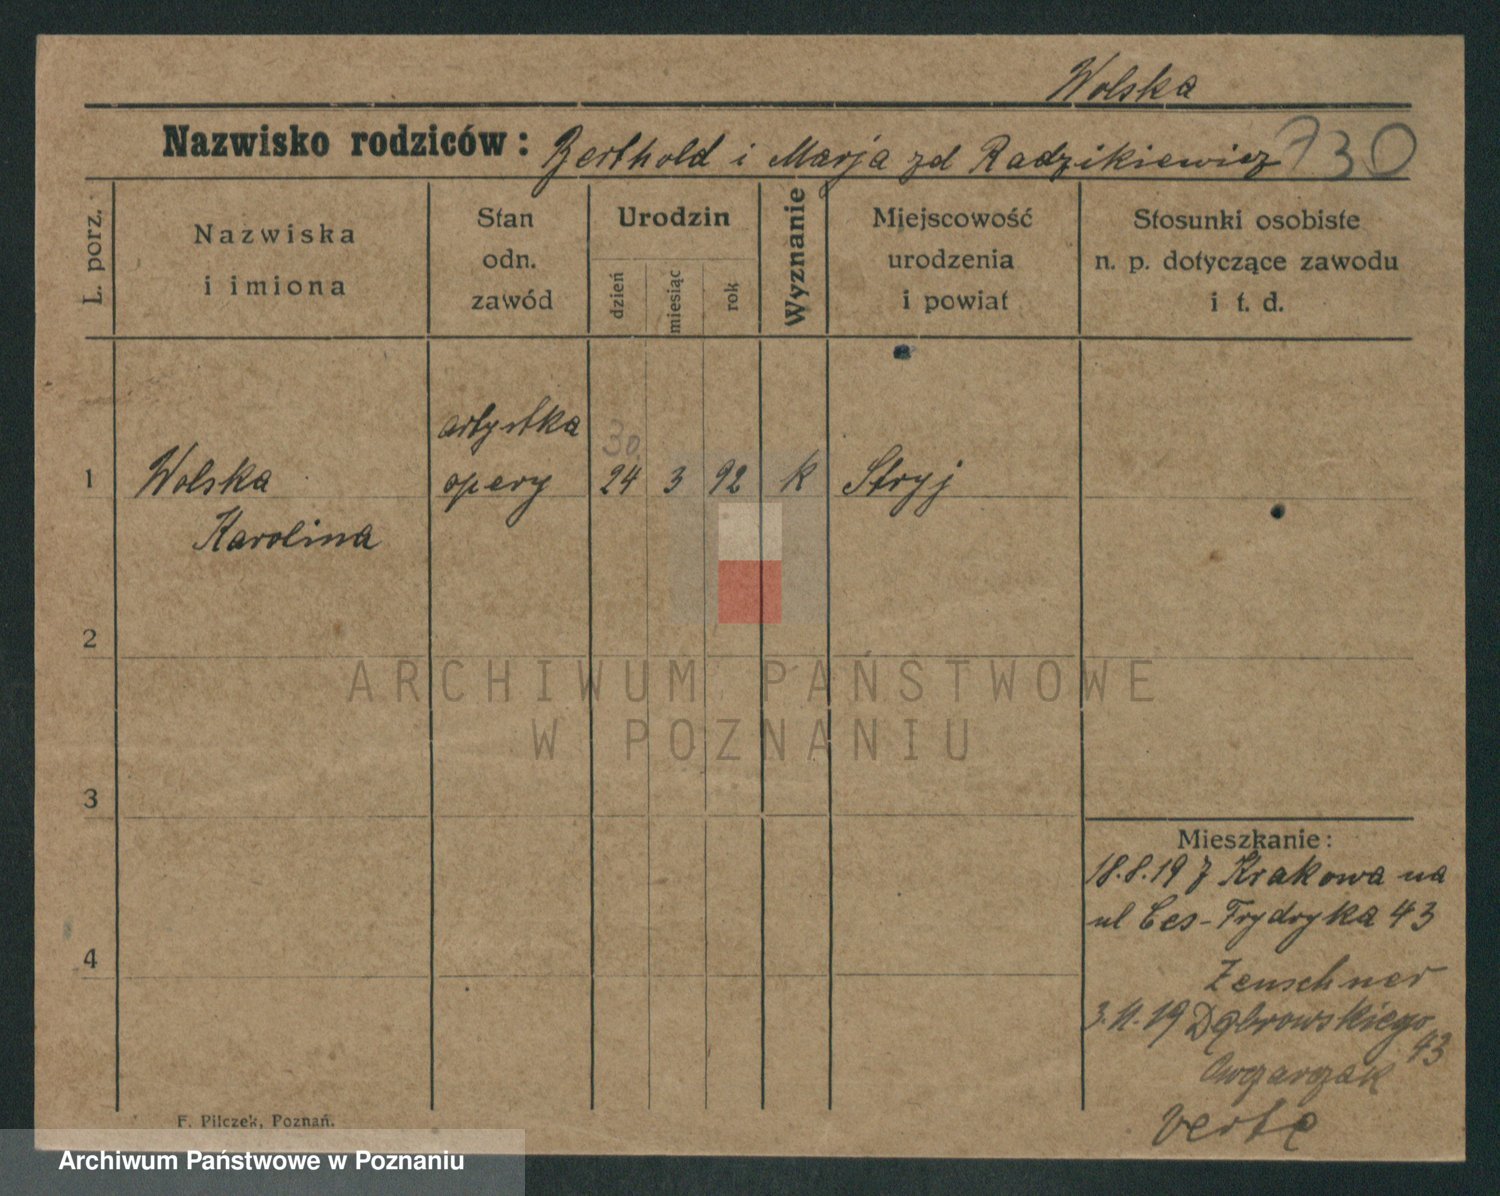 Wolska
Nazwisko rodziców: Berthold i Marja zd Radzikiewicz 730
L. porz.
Nazwiska
i imiona
Stan
odn.
zawód
Urodzin
dzień
miesiąc
rok
Wyznanie
Miejscowość
urodzenia
i powiat
Stosunki osobiste
n. p. dotyczące zawodu
i t. d.
artystka
30
1 Wolska opery 24 3 92 k Stryj
Karolina
2
ARCHIWUM PAŃSTWOWE
W POZNANIU
3
Mieszkanie:
18.8.19 z Krakowa na
ul Ces-Frydryka 43
4
Zenschner
3.11.19 Dąbrowskiego
43
Owczarczak
verte
F. Pilczek, Poznań.
Archiwum Państwowe w Poznaniu